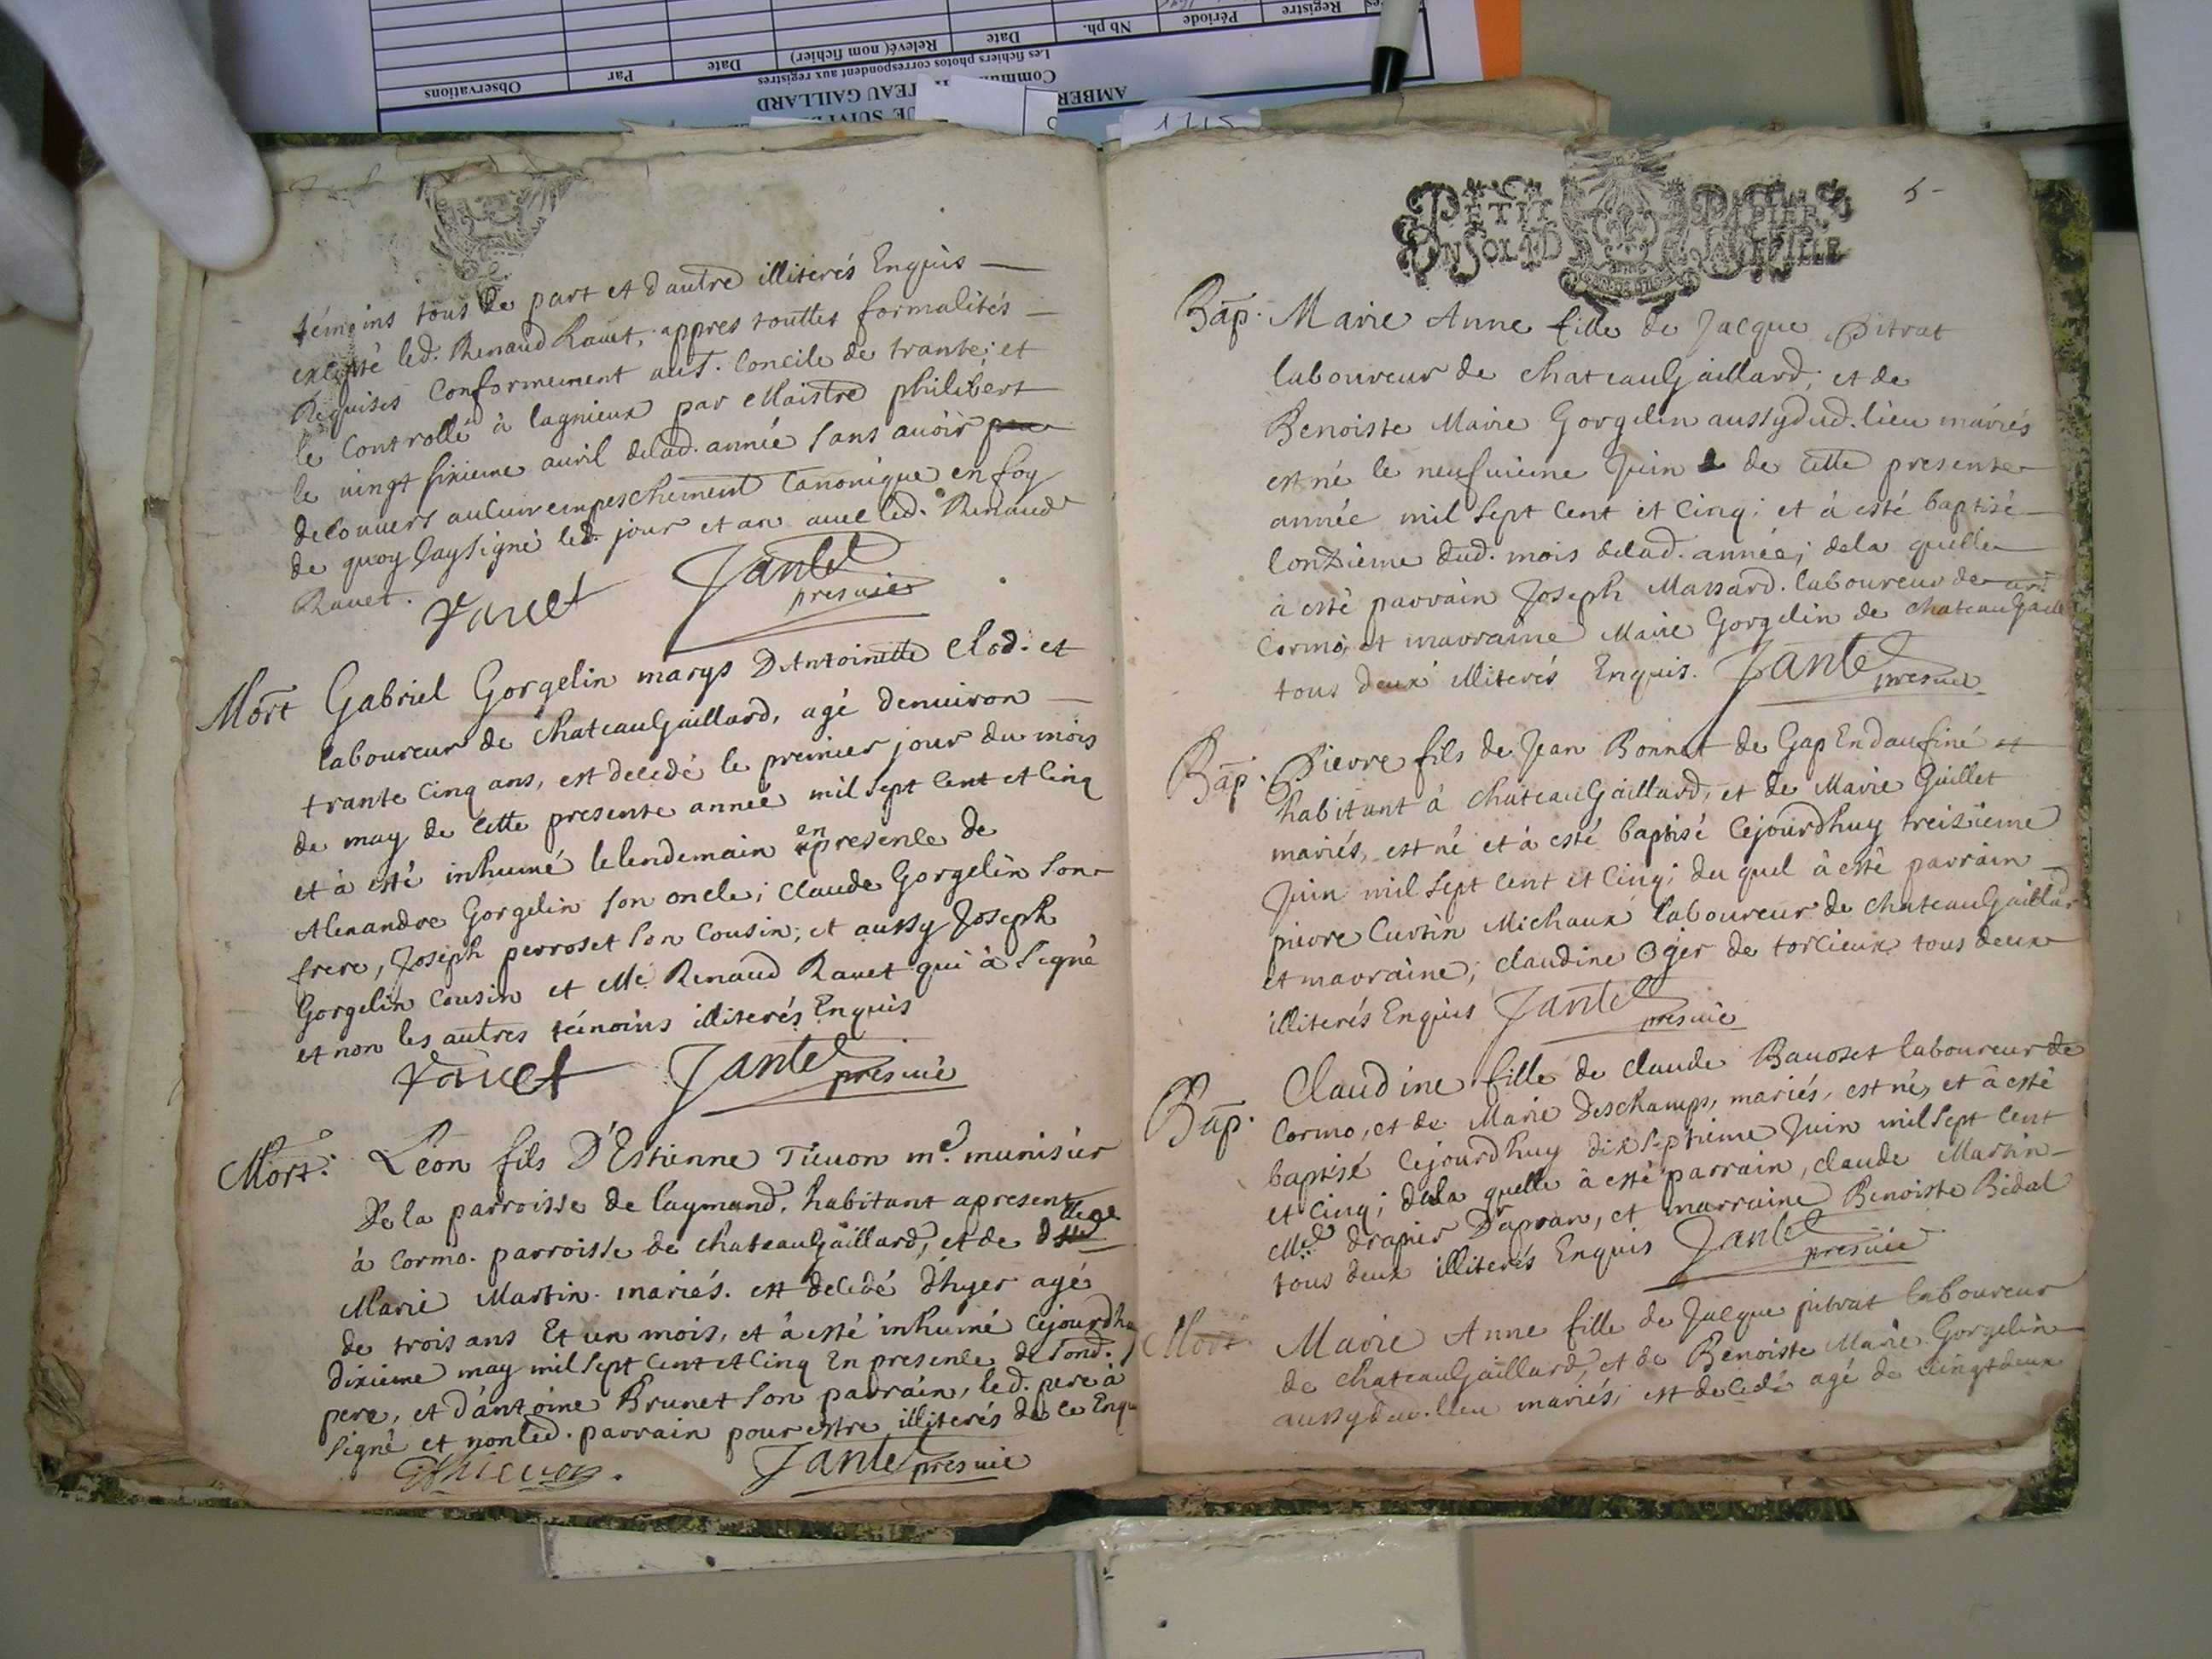 Observations
Par
Date
Relevé (nom fichier)
Date
Nb ph.
Période
Registre
Les fichiers photos correspondent aux registres
AMBER
TEAU GAILLARD
1715
témoins tous de part et dautre illiterés Enquis
excepté led. Renaud Ravet, appres touttes formalités
Requises conformement au St. Concile de trante; et
le Controllé à lagnieux par Maistre philibert
le vingt sixieme auril delad. année sans auoir
decouuert aucun empeschement Canonique en foy
de quoy Jay signé led. jour et an auec led. Renaud
Rauet.
Rauet Jantet
presvic
Mort Gabriel Gorgelin marys D'Antoinette Clod. et
laboureur de ChateauGaillard, agé denuiron
trante cinq ans, est decedé le premier jour du mois
de may de cette presente année mil sept cent et cinq
et à esté inhumé le lendemain en presence de
Alexandre Gorgelin son oncle; Claude Gorgelin son
frere, Joseph perroset son Cousin; et aussy Joseph
Gorgelin Cousin et Me Renaud Rauet qui à signé
et non les autres témoins illiterés Enquis
Rauet Jantet
presvic
Mort. Léon fils D'Estienne Tieuon me. munisier
De la parroisse de laymand. habitant apresent
à Cormo. parroisse de chateauGaillard, et de
Marie Martin. mariés. est decedé d'hyer agé
de trois ans Et un mois, et à esté inhumé Cejourdhu
dixieme may mil sept cent et Cinq En presence de sond.
pere, et d'antoine Brunet son parrain, led. pere à
signé et non led. parrain pour estre illiterés de ce Enqu
Jantet presvic
5
PETIT PAPIER
UN SOL LA FEUILLE
Bap. Marie Anne fille de Jacque Pitrat
laboureur de chateauGaillard; et de
Benoiste Marie Gorgelin aussy dud. lieu mariés
est né le neufuieme Juin de cette presente
année mil sept cent et cinq; et à esté baptisé
lonzieme dud. mois delad. année; dela quelle
à esté parrain Joseph Massard. laboureur de
Cormo, et marraine Marie Gorgelin de chateauGaillard
tous deux illiterés Enquis. Jantet
presvic
Bap. Pierre fils de Jean Bonnet de Gap En daufiné et
habitant à chateauGaillard, et de Marie Guillet
mariés, est né et à esté baptisé Cejourdhuy treizieme
Juin mil sept cent et Cinq; du quel à esté parrain
pierre Curtin Michaux laboureur de chateauGaillard
et marraine; claudine Oger de torcieux tous deux
illiterés Enquis Jantet
presvic
Bap. Claudine fille de claude Bauozet laboureur de
Cormo, et de Marie Deschamps, mariés, est né, et à esté
baptisé Cejourdhuy dix septieme Juin mil sept cent
et Cinq; dela quelle à esté parrain, claude Martin
Md drapier D'apran, et marraine Benoiste Bidal
tous deux illiterés Enquis Jantet
presvic
Mort Marie Anne fille de Jacque pitrat laboureur
de chateauGaillard, et de Benoiste Marie Gorgelin
aussy dud. lieu mariés; est decedé agé de vingt deux